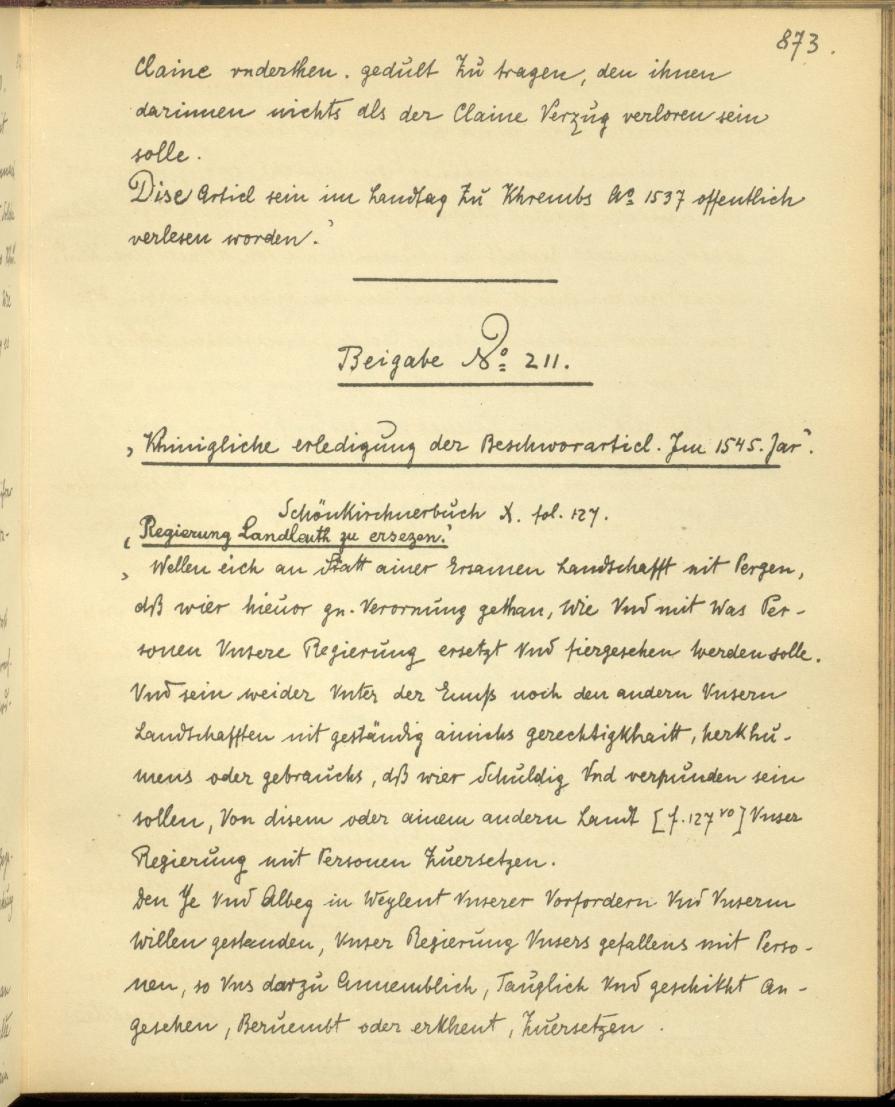 873.
Claine vnderthen. gedult Zu tragen, den ihnen
darinnen nichts als der Claine Verzug verloren sein
solle.
Dise Articl sein im Landtag Zu Khrembs Ao 1537 offentlich
verlesen worden."
Beigabe No 211.
„Khinigliche erledigung der Beschworarticl. Im 1545. Jar".
Schönkirchnerbuch X. fol. 127.
„Regierung Landleuth zu ersezen."
„Wellen eich an Statt ainer Ersamen Landschafft nit Pergen,
dß wier hieuor gn. Verornung gethan, Wie Vnd mit Was Per-
sonen Vnsere Regierung ersetzt Vnd fiergesehen werden solle.
Vnd sein weider Vnter der Ennß noch den andern Vnsern
Landschafften nit geständig ainichs gerechtigkhaitt, herkhu-
mens oder gebrauchs, dß wier Schuldig Vnd verpunden sein
sollen, Von disem oder ainem andern Landt [f. 127 vo] Vnser
Regierung mit Personen Zuersetzen.
Den Je Vnd Albeg in Weylent Vnserer Vorfordern Vnd Vnserm
willen gestanden, Vnser Regierung Vnsers gefallens mit Perso-
nen, so Vns darzu Annemblich, Tauglich Vnd geschikht An-
gesehen, Beruembt oder erkhent, Zuersetzen.